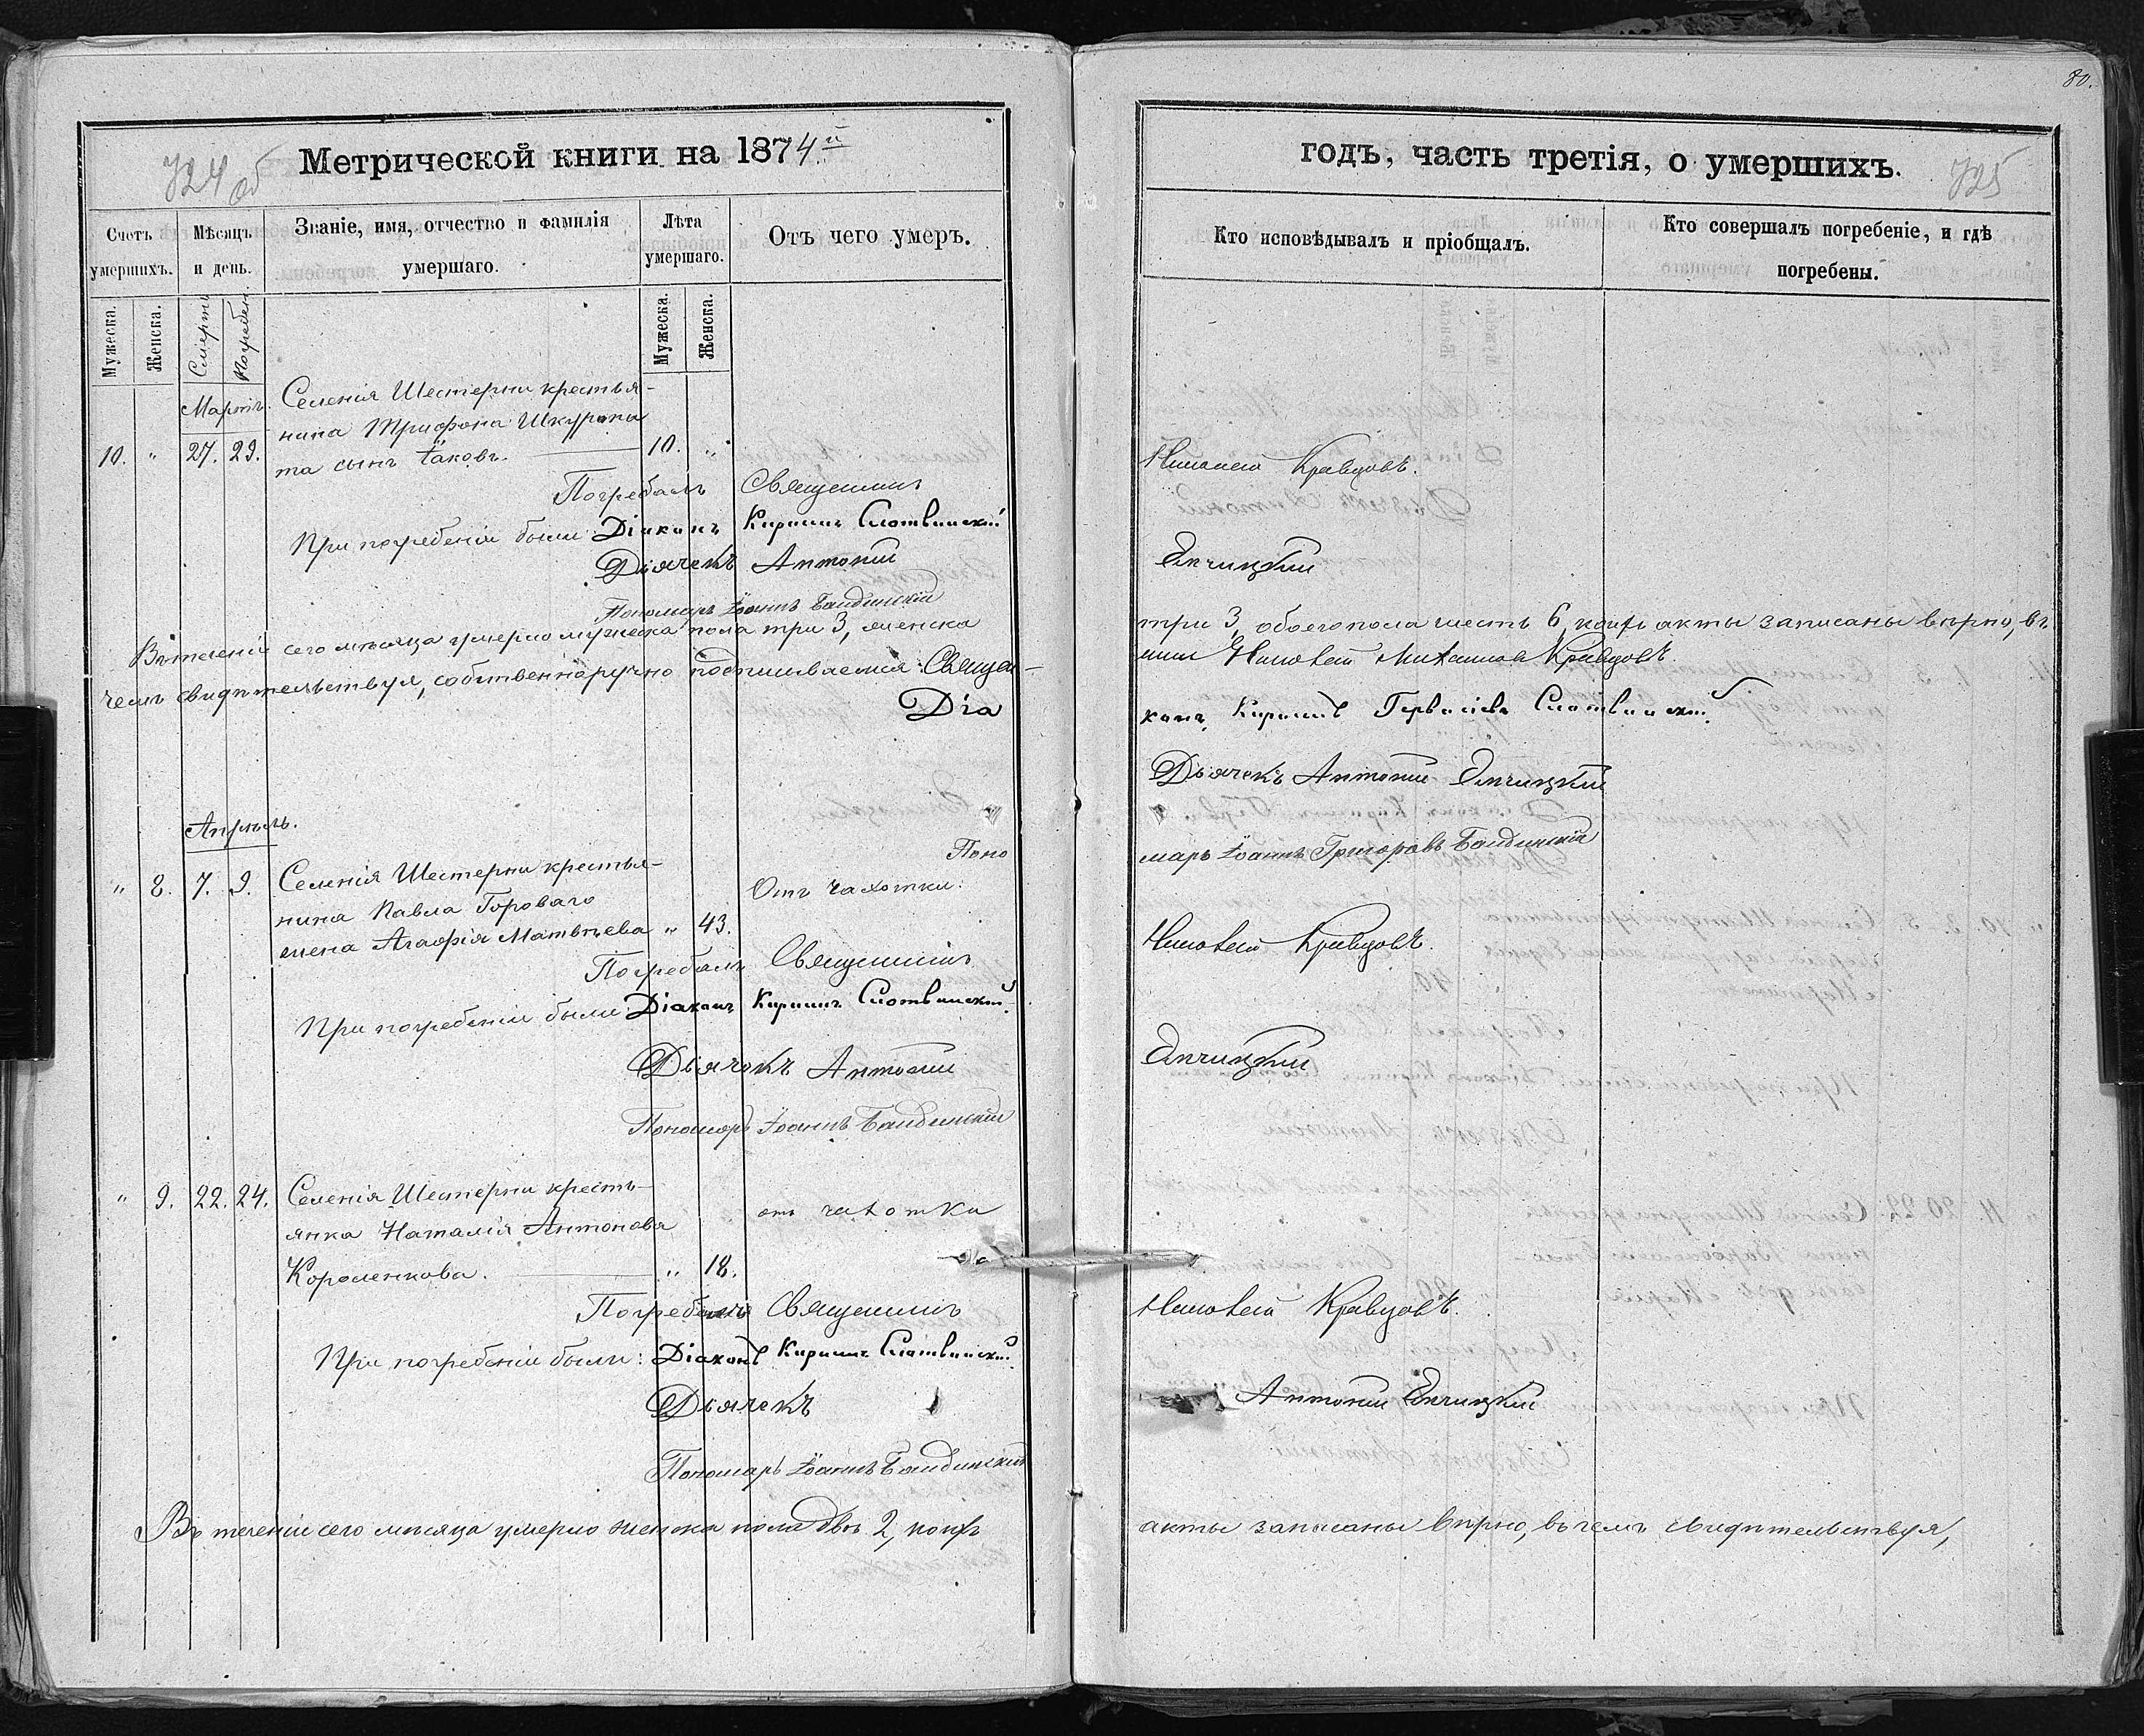 80.
724 об
Метрической книги на 1874й
Счетъ умершихъ.
Мѣсяцъ и день.
Званіе, имя, отчество и фамилія умершаго.
Лѣта умершаго.
Отъ чего умеръ.
Мужеска.
Женска.
Смерть
Погребен.
Мужеска.
Женска.
Мартъ.
Селенія Шестерни крестья-
нина Трифона
10. " 27. 29. та сынъ Іаковъ. 10. "
Погребалъ Священникъ
При погребеніи были Діаконъ Кириллъ Слотвинскій
Дьячекъ Антоній
Пономарь Іоаннъ
Въ теченіи сего мѣсяца умерло мужеска пола три 3, женска
чемъ свидѣтельствуя, собственноручно подписываемся: Священ-
Діа
Апрѣль.
Поно
Селенія Шестерни крестья-
" 8. 7. 9. Отъ чахотки.
нина Павла Гороваго
жена Агафія Матвѣева " 43.
Погребалъ Священникъ
При погребеніи были Діаконъ Кириллъ Слотвинскій
Дьячокъ Антоній
Пономарь Іоаннъ
" 9. 22. 24. Селенія Шестерни кресть-
янка Наталія Антонова отъ чахотки
Короленкова. " 18.
Погребалъ Священникъ
При погребеніи были: Діаконъ Кириллъ Слотвинскій
Дьячекъ
Пономарь Іоаннъ
Въ теченіи сего мѣсяца умерло женска пола двѣ 2, коихъ
годъ, часть третія, о умершихъ.
725
Кто исповѣдывалъ и пріобщалъ.
Кто совершалъ погребеніе, и гдѣ погребены.
Кравцовъ.
три 3, обоего пола шесть 6, коихъ акты записаны вѣрно, въ
Кравцовъ.
конъ Кириллъ Гервасіевъ Слотвинскій
Дьячекъ Антоній
марь Іоаннъ Григоровъ
Кравцовъ.
Кравцовъ.
Антоній
акты записаны вѣрно, въ чемъ свидѣтельствуя,